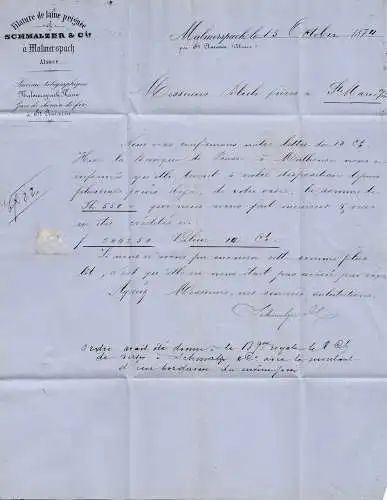 Filature de laine peignée
SCHMALZER & Cie
à Malmerspach
Alsace
Bureau télégraphique
Malmerspach Usine
Gare du chemin de fer
à St Amarin
Malmerspach, le 15 October 1874
par St Amarin (Alsace)
Messieurs frères à Ste Marie
Nous vous confirmons notre lettre du 10 Ct.
Hier la Banque de à Mulhouse nous a
informés qu'elle tenait à notre disposition depuis
plusieurs jours déjà, de votre ordre, la somme de
550 que nous avons fait encaisser & vous
en êtes crédités en
f 2062,50 Valeur 10 Ct.
Si nous n'avons pas mentionné cette somme plus
tôt, c'est qu'elle ne nous était pas avisée par vous
Agréez Messieurs, nos sincères salutations,
ordre avait été donné à la Bque le 8 Ct.
de verser à Schmalzer & Cie le montant
d'un bordereau du même jour